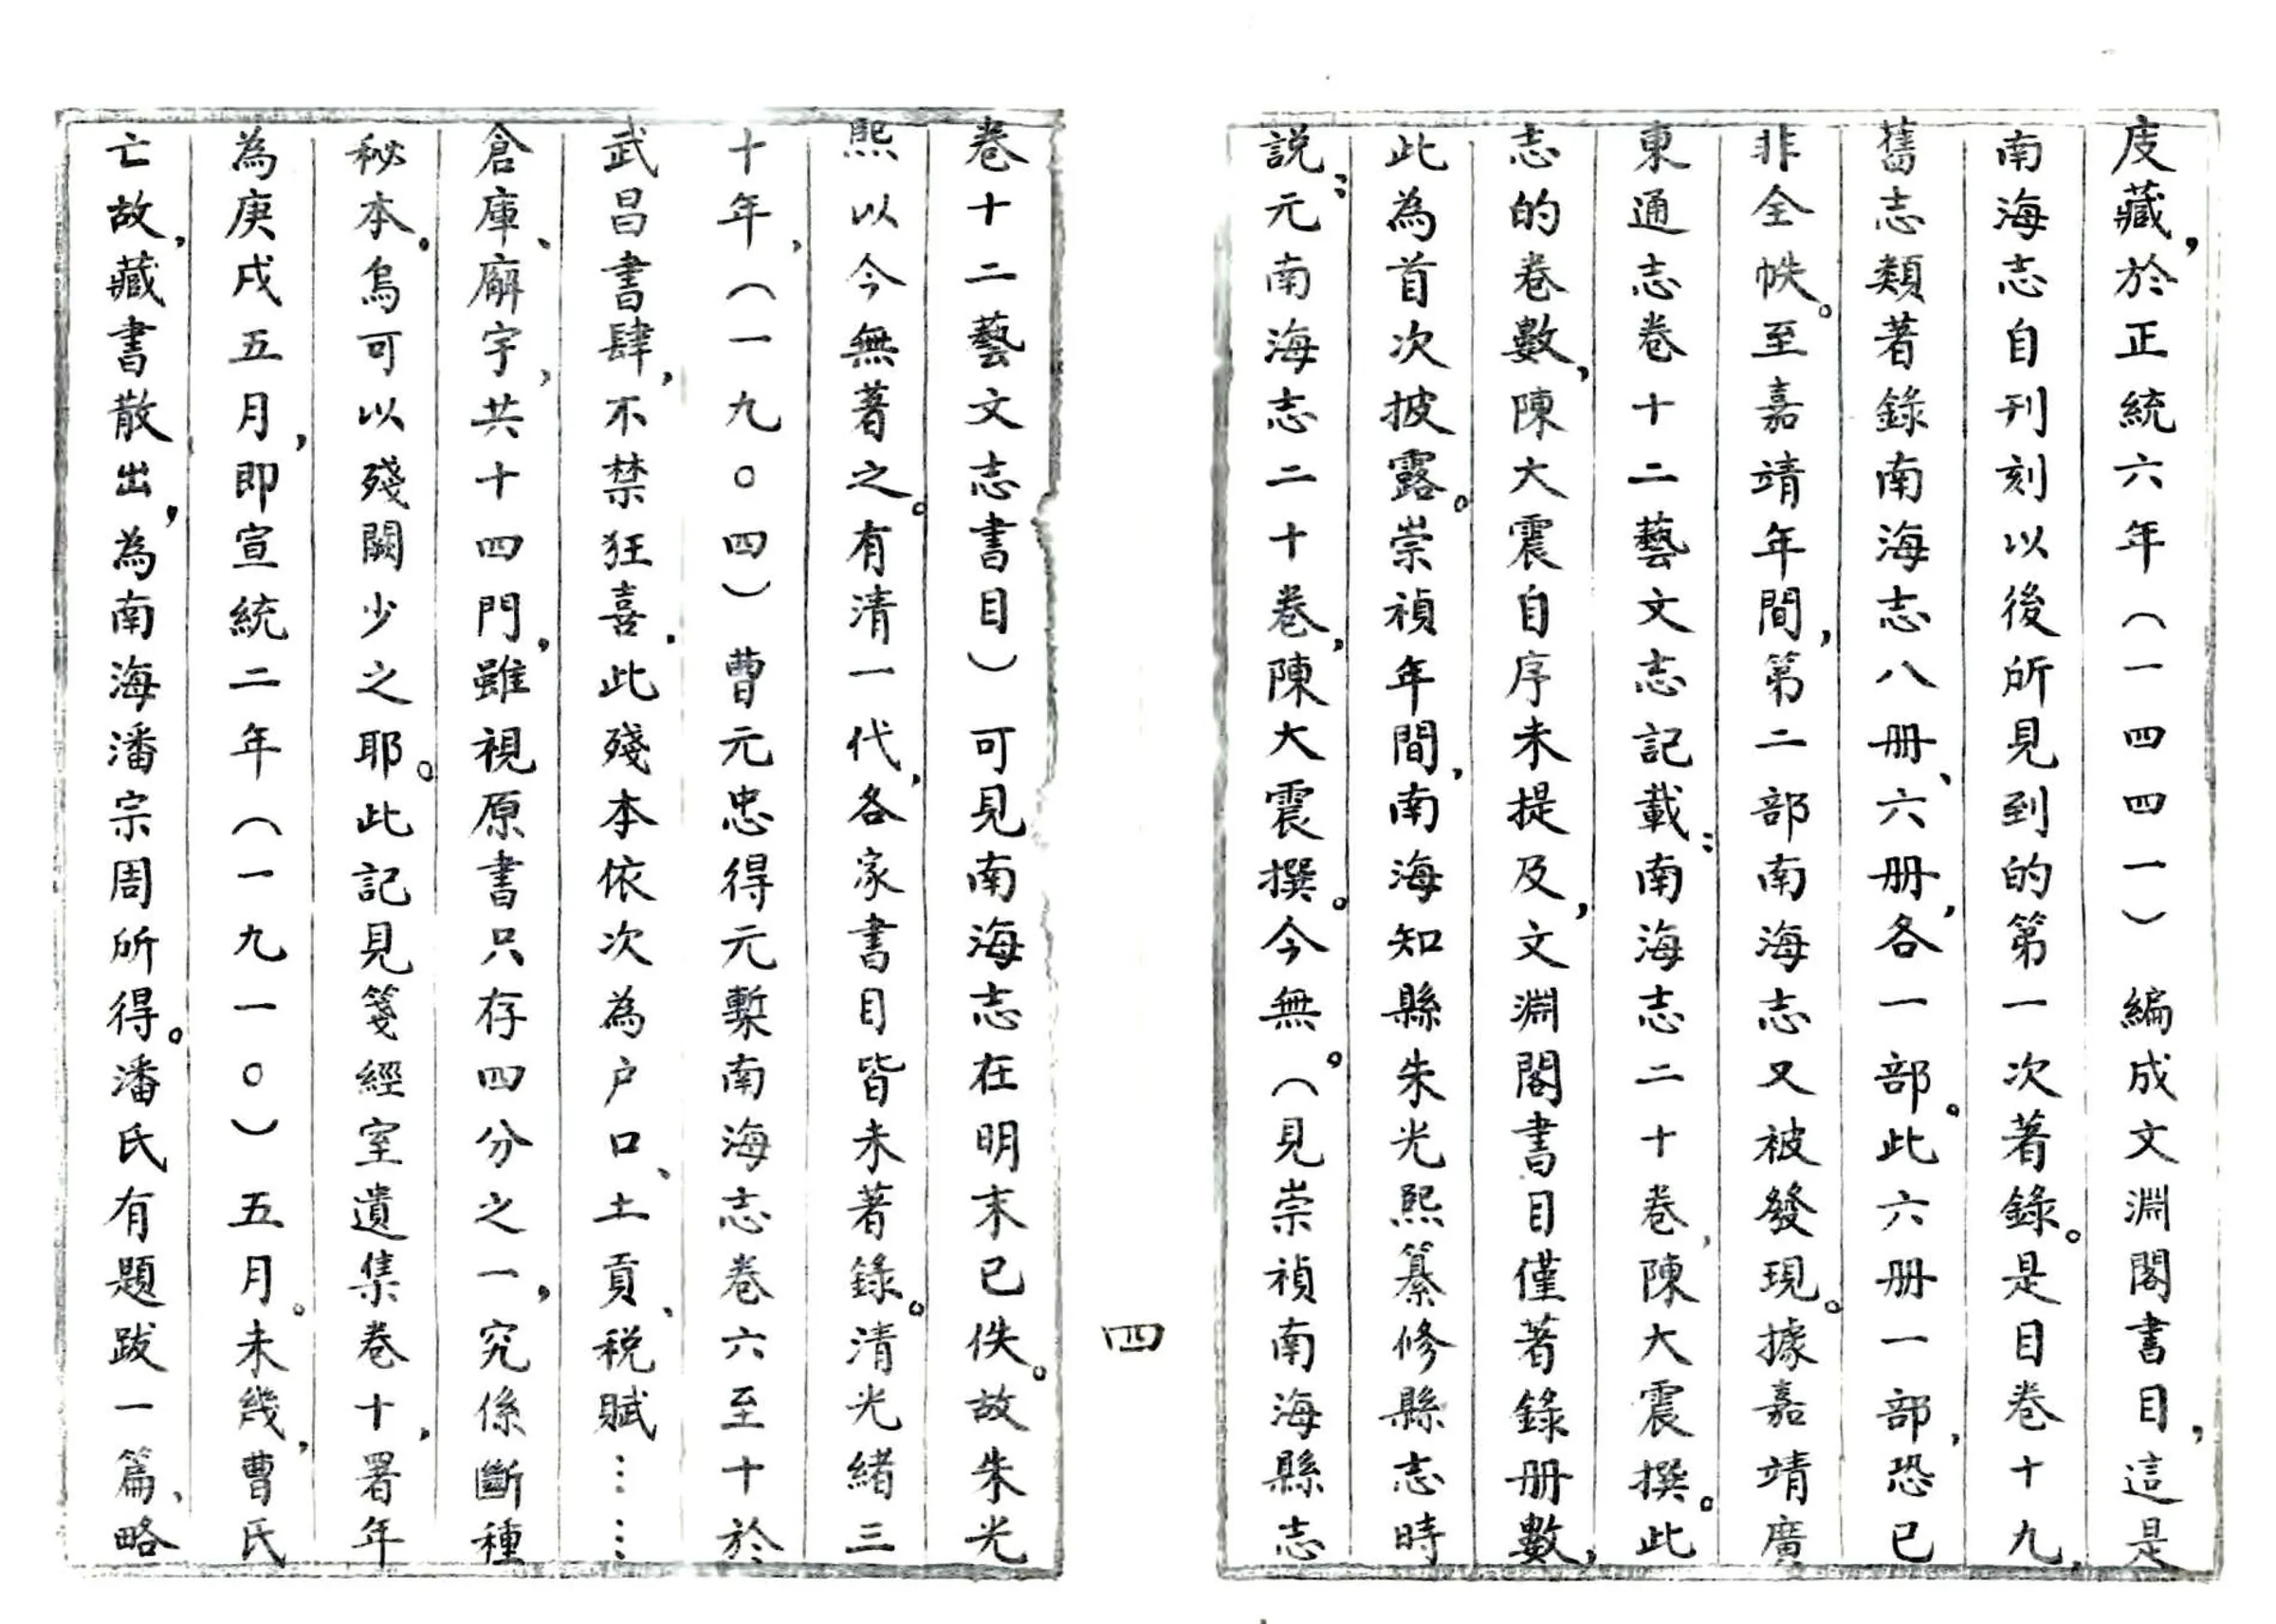 庋藏，於正統六年（一四四一）編成文淵閣書目，這是
南海志自刊刻以後所見到的第一次著錄。是目卷十九，
舊志類著錄南海志八册、六册，各一部。此六册一部，恐已
非全帙。至嘉靖年間，第二部南海志又被發現。據嘉靖廣
東通志卷十二藝文志記載：南海志二十卷，陳大震撰。此
志的卷數，陳大震自序未提及，文淵閣書目僅著錄册數，
此為首次披露。崇禎年間，南海知縣朱光熙纂修縣志時
説：元南海志二十卷，陳大震撰。今無。（見崇禎南海縣志
四
卷十二藝文志書目）可見南海志在明末已佚。故朱光
熙以今無著之。有清一代，各家書目皆未著錄。清光緒三
十年，（一九〇四）曹元忠得元槧南海志卷六至十於
武昌書肆，不禁狂喜．此殘本依次為户口、土貢、税賦……
倉庫、廨宇，共十四門，雖視原書只存四分之一，究係斷種
秘本．烏可以殘闕少之耶。此記見箋經室遺集卷十，署年
為庚戌五月，即宣統二年（一九一〇）五月。未幾，曹氏
亡故，藏書散出，為南海潘宗周所得。潘氏有題跋一篇、略